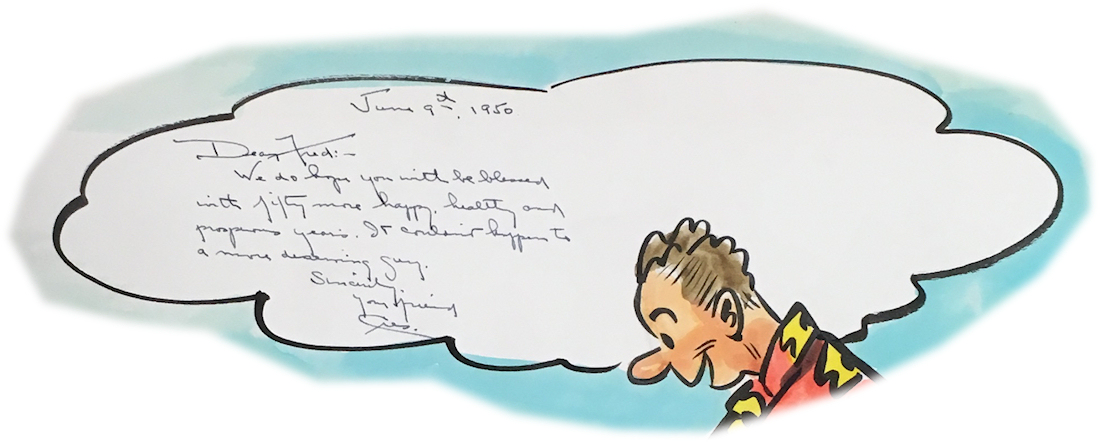 June 9th, 1950
Dear Fred:-
We do hope you will be blessed
with fifty more happy, healthy and
prosperous years. It couldn't happen to
a more deserving guy.
Sincerely
Your friend